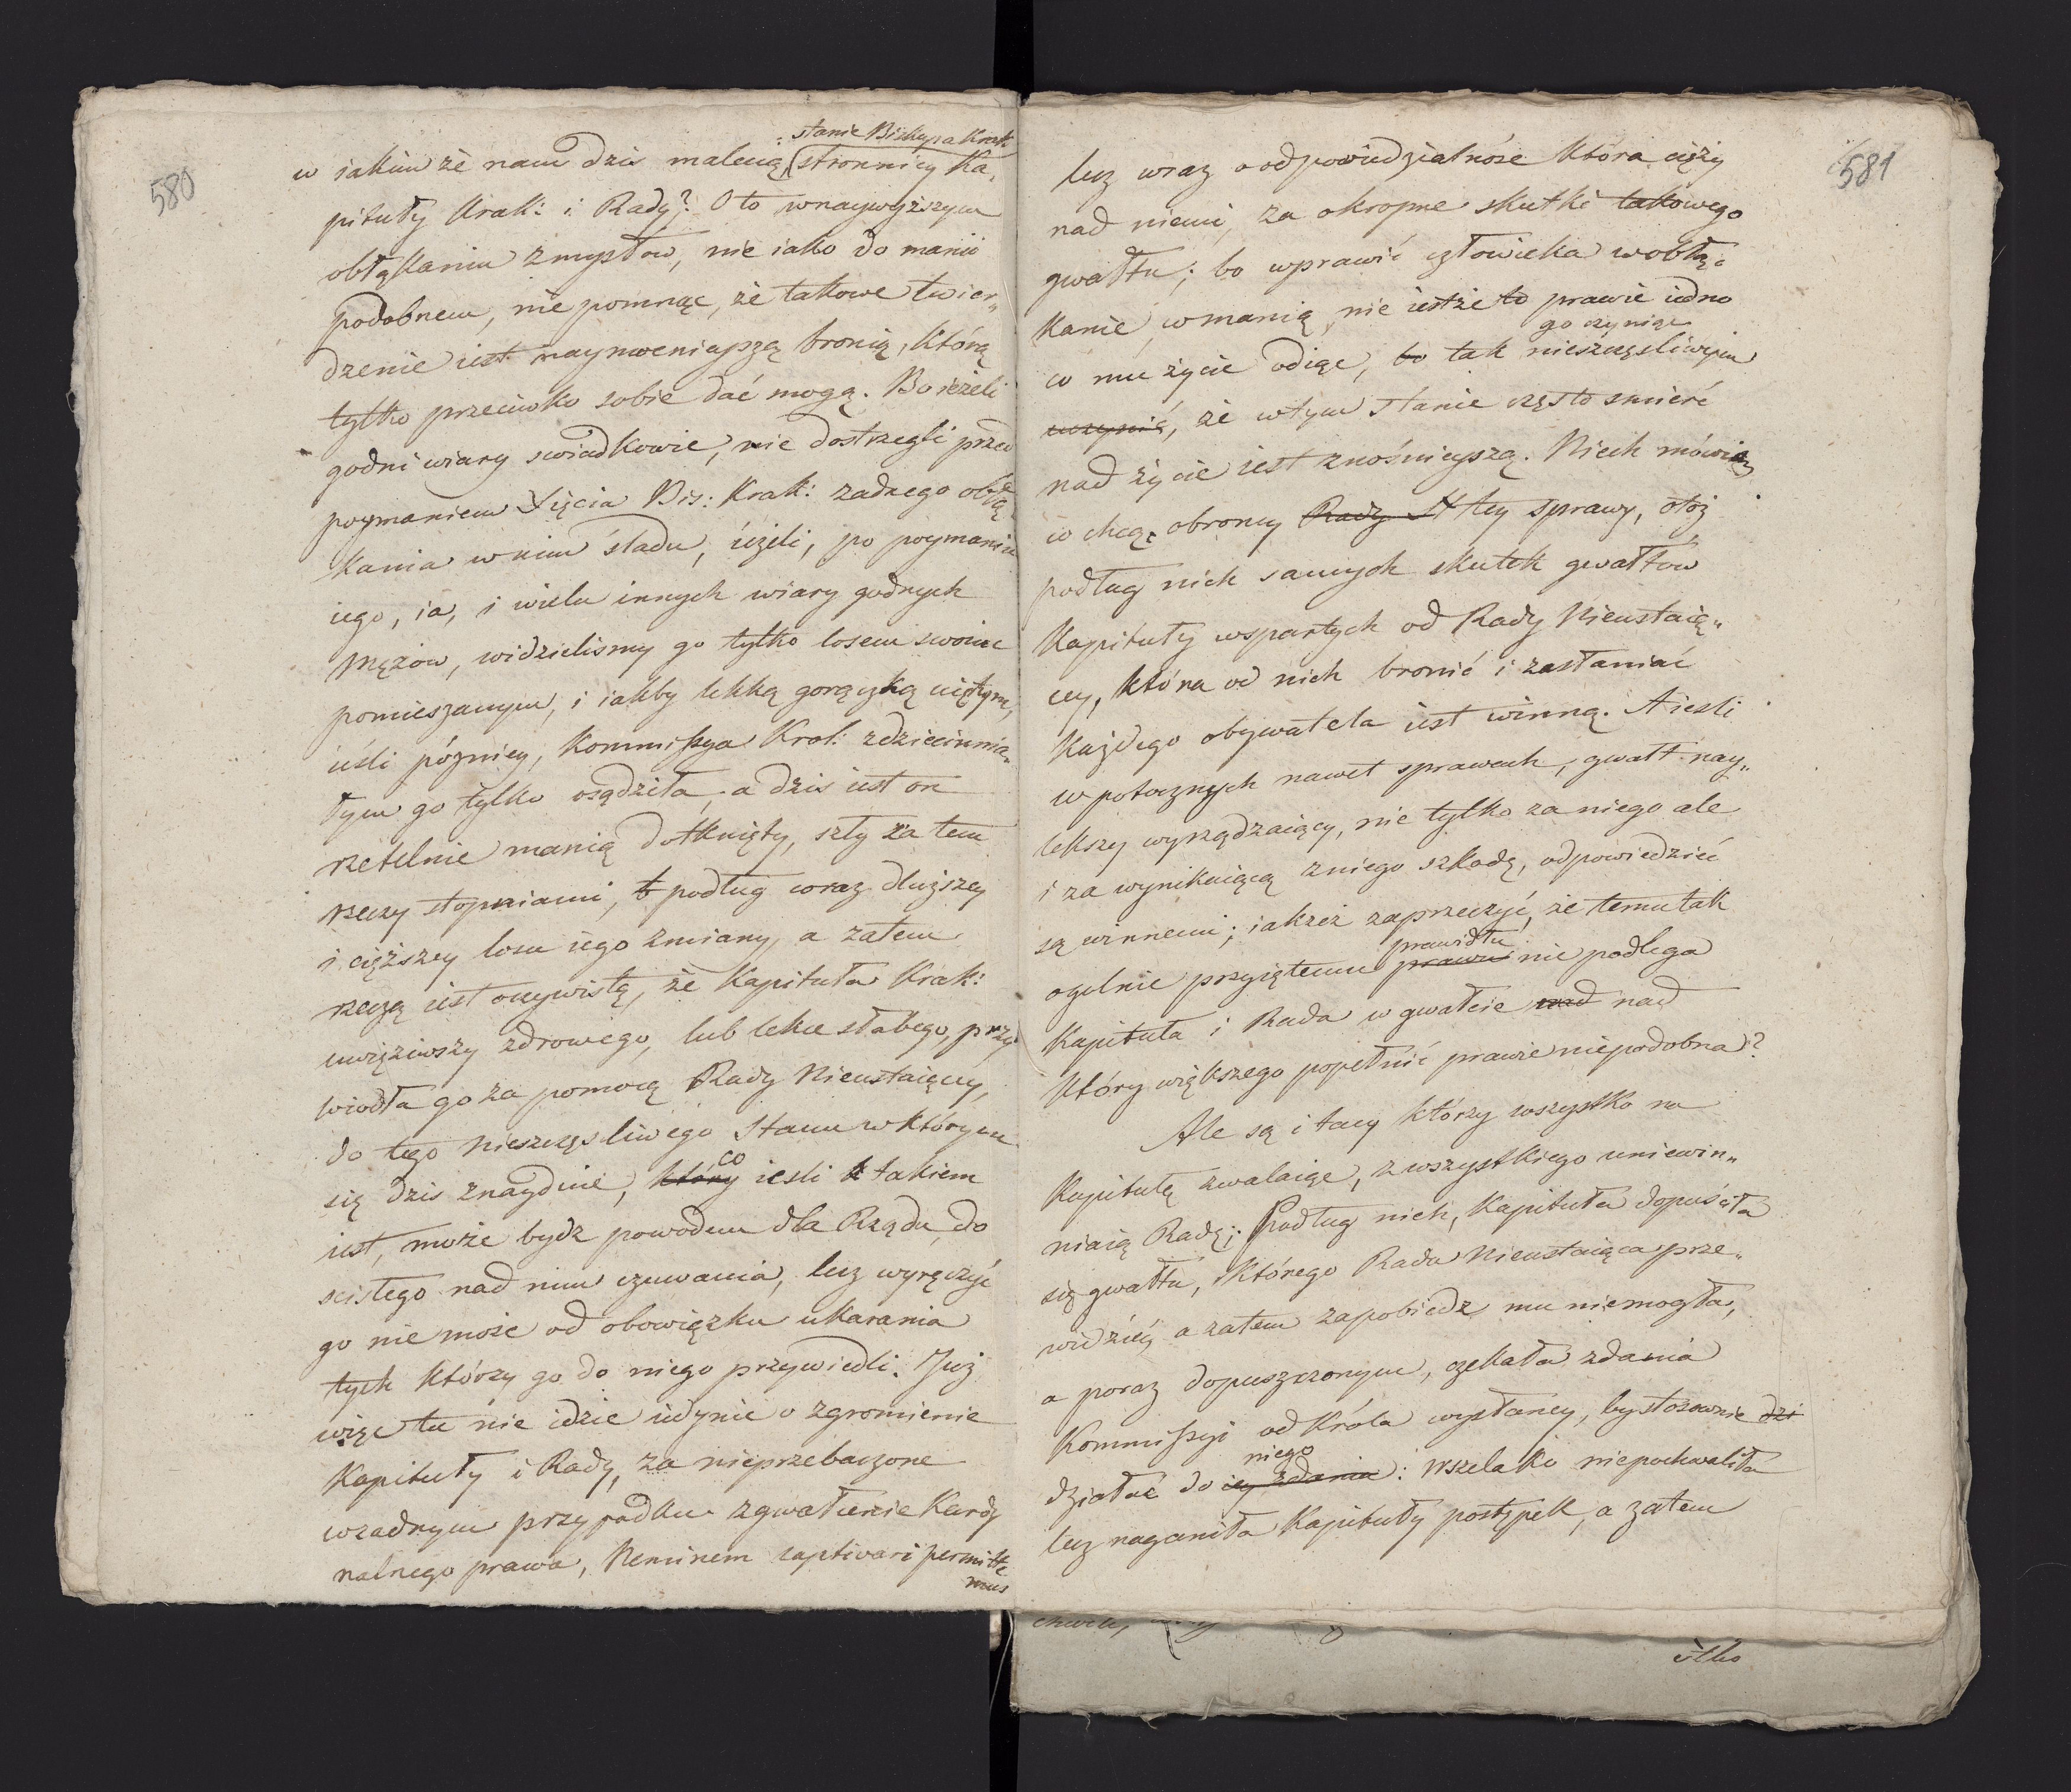 580
stanie Biskupa Krak:
w iakim że nam dzis maluią stronnicy Ka„
pituły Krak: i Rady? Oto wnaywyższym
obłąkaniu zmysłow, nie iako do manii
podobnem, nie pomnąc, że takowe twier„
dzenie iest naymocnieyszą bronią, którą
tylko przeciwko sobie dać mogą. Bo ieżeli
godni wiary swiadkowie, nie dostrzegli przed
poymaniem Xięcia Bis: Krak: zadnego obłą
kania w nim śladu, ieżeli, po poymaniu
iego, ia, i wielu innych wiary godnych
Mężow, widzielismy go tylko losem swoim
pomieszanym, i iakby lekką gorączką ciętym,
ieśli pózniey, Kommissya Krol: zdziecinnia„
łym go tylko osądziła, a dzis iest on
rzetelnie manią dotknięty, szły za tem
rzeczy stopniami, podług coraz dłuższey
i cięższey losu iego zmiany, a zatem
rzeczą iest oczywistą, że Kapituła Krak:
uwięziwszy zdrowego, lub lekce słabego, przy
wiodła go za pomocą Rady Nieustaiącey,
do tego nieszczęsliwego Stanu w którym
się dzis znayduie, który co iesli takiem
iest, może bydz powodem dla Rządu, do
scisłego nad nim czuwania, lecz wyręczyć
go nie może od obowiązku ukarania
tych którzy go do niego przywiedli. Już
więc tu nie idzie iedynie o zgromienie
Kapituły i Rady, za nieprzebaczone
wzadnym przypadku zgwałcenie Kardy
nalnego prawa, Neminem captivari permitte
mus
581
lecz wraz o odpowiedzialność która cięży
nad niemi, za okropne skutki takowego
gwałtu; bo wprawić człowieka w obłą„
kanie, w manią, nie iestże to prawie iedno
go czyniąc
co mu życie odiąc, to tak nieszczęsliwym
uczynić, że wtym Stanie często smierć
nad życie iest znośnieyszą. Niech mówią
co chcą obroncy Rady tey sprawy, otóż
podług nich samych skutek gwałtow
Kapituły wspartych od Rady Nieustaią„
cey, która od nich bronić i zasłaniać
każdego obywatela iest winną. A iesli
w potocznych nawet sprawach, gwałt nay„
lekszy wyrządzaiący, nie tylko za niego ale
i za wynikaiącą z niego szkodę, odpowiedzieć
są winnemi; iakżeż zaprzeczyć, że temu tak
prawidłu
ogolnie przyiętemu prawu nie podlega
Kapituła i Rada w gwałcie nad nad
który większego popełnić prawie niepodobna?
Ale są i tacy którzy wszystko na
Kapitułę zwalaiąc, z wszystkiego uniewin„
niaią Radę; Podług nich, Kapituła dopuściła
się gwałtu, którego Rada Nieustaiąca prze„
widzieć, a zatem zapobiedz mu niemogła,
a poraz dopuszczonym, czekała zdania
Kommissyi od Króla wysłaney, by stosownie dzi
niego
działać do iey zdania: Wszelako niepochwaliła
lecz naganiła Kapituły postępek, a zatem